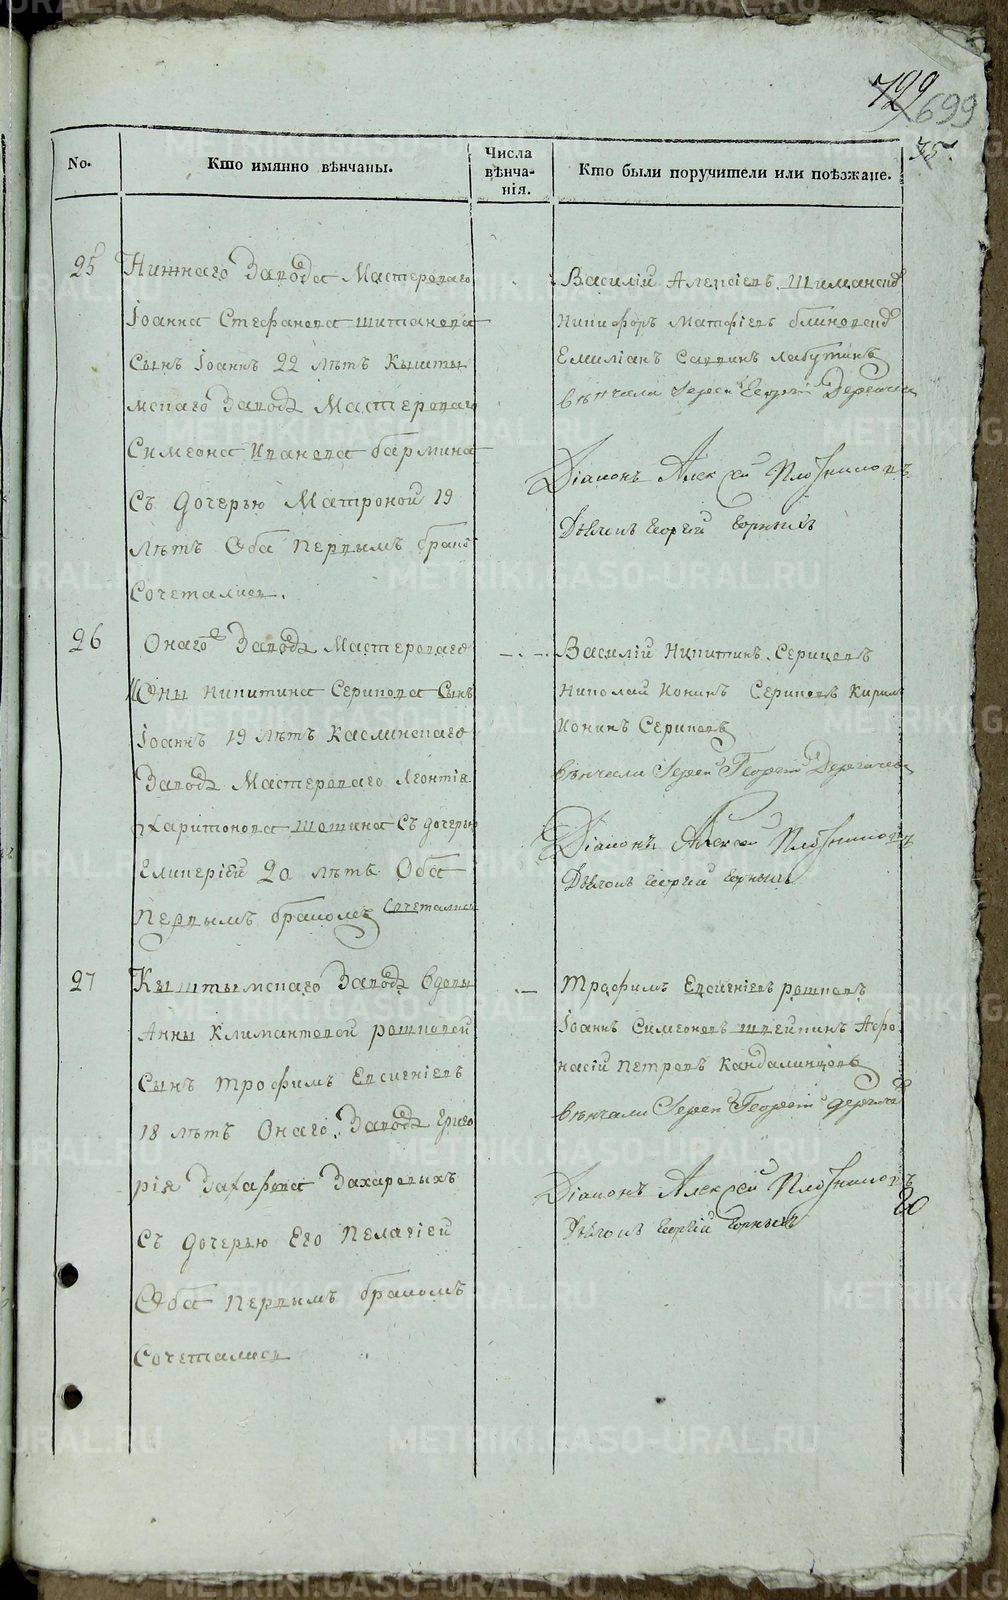 729 699
75.
No.
Кто имянно вѣнчаны.
Числа вѣнча-
нія.
Кто были поручители или поѣзжане.
25
Нижнаго Завода Мастероваго
Іоанна Стефанова Шитанова
сынъ Іоаннъ 22 лѣтъ Кышты
мскаго Завода Мастероваго
Симеона Иванова Бармина
съ дочерью Матроной 19
лѣтъ Оба первымъ брако
сочетались.
Василій Алексіевъ
Никифоръ Матфіевъ Блиновсков
Емиліанъ Саввинъ Лабутинъ
вѣнчали Іерей Георгій Дерягачев
Діаконъ Алексей Плотниковъ
Дьячокъ Георгій Горныхъ
26
Онаго Завода Мастероваго
Іоны Никитина Серикова Сынъ
Іоаннъ 19 лѣтъ Каслинскаго
Завода Мастероваго Леонтія
Харитонова Шошина съ дочерью
Еликеріей 20 лѣтъ Оба
первымъ бракомъ сочетались
Василій Никитинъ Сериковъ
Николай Іонинъ Сериковъ Кирилъ
Іонинъ Сериковъ
вѣнчали Іерей Георгій Дерягачев
Діаконъ Алексей Плотниковъ
Дьячокъ Георгій Горныхъ
27
Кыштымскаго Завода вдовы
Анны Климантовой Рошковой
сынъ Трофимъ Евсигніевъ
18 лѣтъ Онаго Завода Григо
рія Захарова Захаровыхъ
съ дочерью Его Пелагіей
Оба первымъ бракомъ
сочетались
Трофимъ Евсигніевъ Рошковъ
Іоаннъ Симеоновъ Швейкинъ Афо
насій Петровъ Кандалинцовъ
вѣнчали Іерей Георгій Дерягачев
Діаконъ Алексей Плотниковъ
Дьячокъ Георгій Горныхъ
20
METRIKI.GASO-URAL.RU